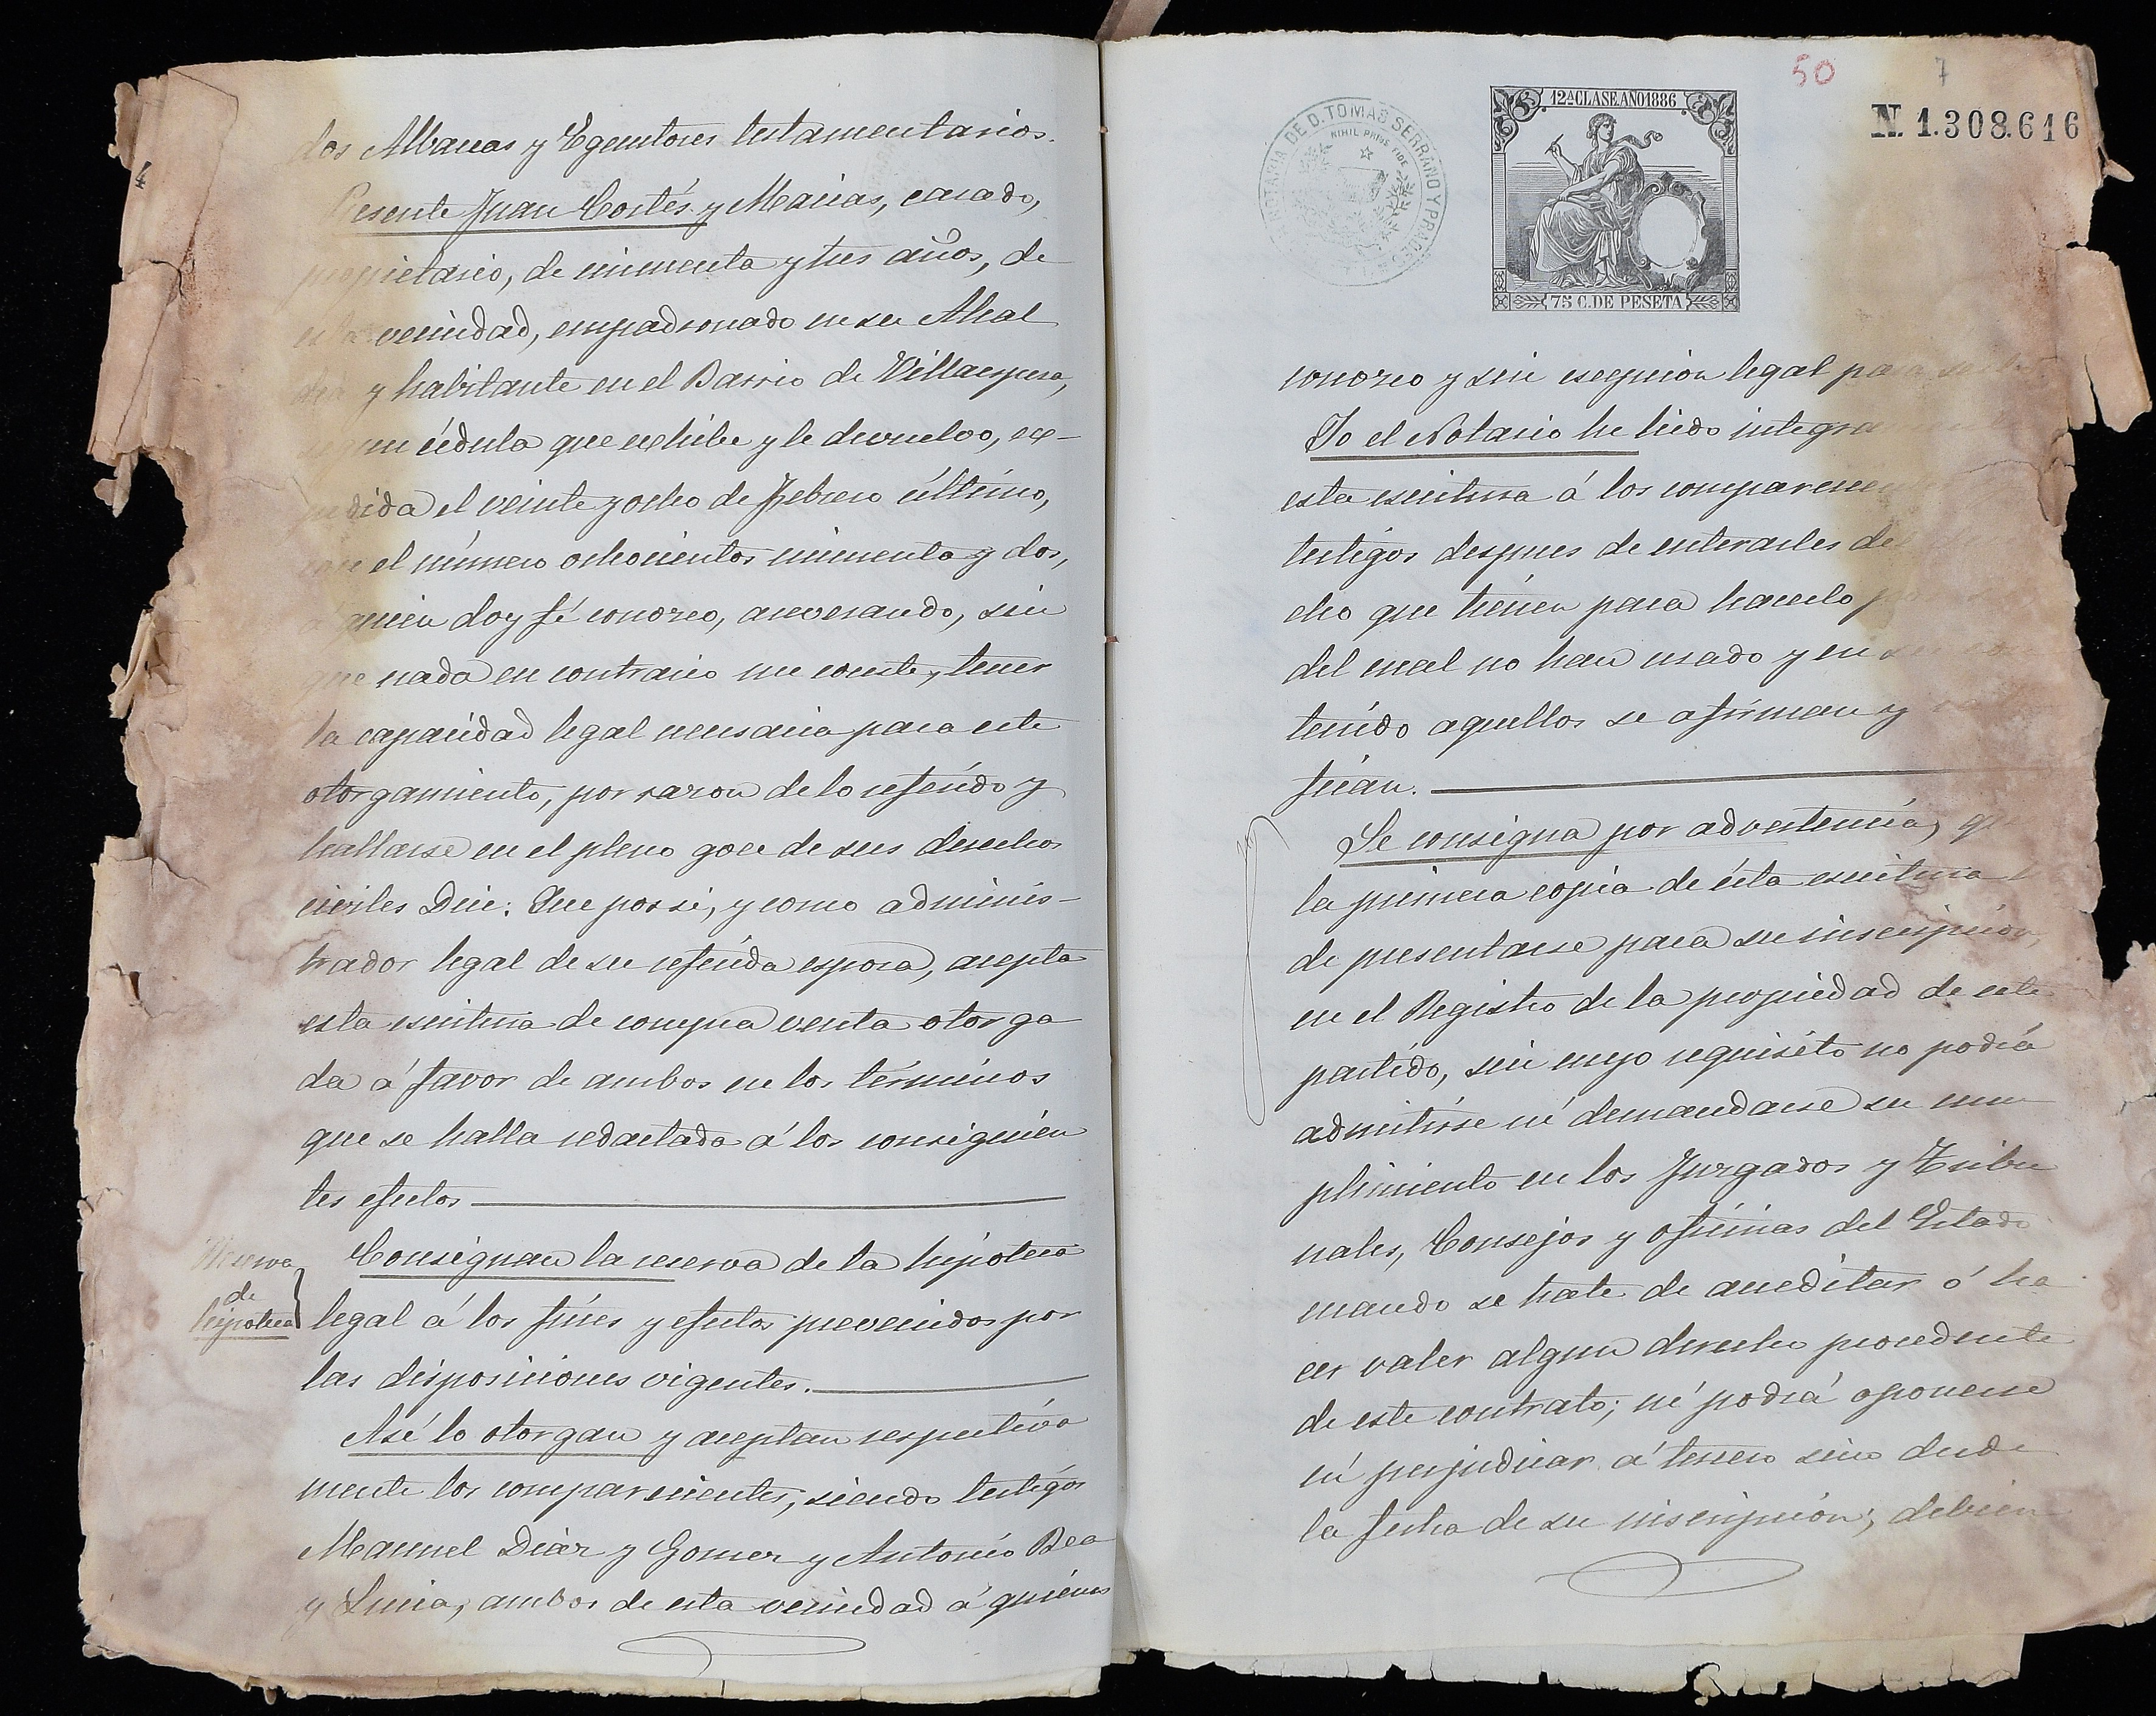 dos Albaceas y Egecutores testamentarios.
Presente Juan Cortés y Macias, casado,
propietario, de cincuenta y tres años, de
esta vecindad, empadronado en su Alcal
dia y habitante en el Barrio de Villaespesa,
segun cédula que exhibe y le devuelvo, ex-
pedida el veinte y ocho de Febrero último,
con el número ochocientos cincuenta y dos,
á quien doy fé conozco, aseverando, sin
que nada en contrario me conste, tener
la capacidad legal necesaria para este
otorgamiento, por razon de lo referido y
hallarse en el pleno goce de sus derechos
civiles Dice: Que por si, y como adminis-
trador legal de su referida esposa, acepta
esta escritura de compra venta otorga
da á favor de ambos en los términos
que se halla redactada á los consiguien
tes efectos
Reserva
de
hipoteca
Consignan la reserva de la hipoteca
legal á los fines y efectos prevenidos por
las disposiciones vigentes.
Asi lo otorgan y aceptan respectiva
mente los comparecientes, siendo testigos
Manuel Diaz y Gomez y Antonio Bea
y Luna, ambos de esta vecindad á quienes
50
7
NOTARIA DE D. TOMAS SERRANO Y
NIHIL PRIUS FIDE
12ª CLASE AÑO 1886
75 C. DE PESETA
N. 1.308.616
conozco y sin escepcion legal para
Yo el Notario he leido integra
esta escritura á los comparecien
testigos despues de enterarles de
cho que tienen para hacerlo
del cual no han usado y en su con
tenido aquellos se afirman y
fican.
Se consigna por advertencia, que
la primera copia de ésta escritura
de presentarse para su inscripcion,
en el Registro de la propiedad de este
partido, sin cuyo requisito no podrá
admitirse ni demandarse su cum
plimiento en los Juzgados y Tribu
nales, Consejos y oficinas del Estado
cuando se trate de acreditar ó ha
cer valer algun derecho procedente
de este contrato; ni podrá oponerse
ni perjudicar á tercero sino desde
la fecha de su inscripcion; debien